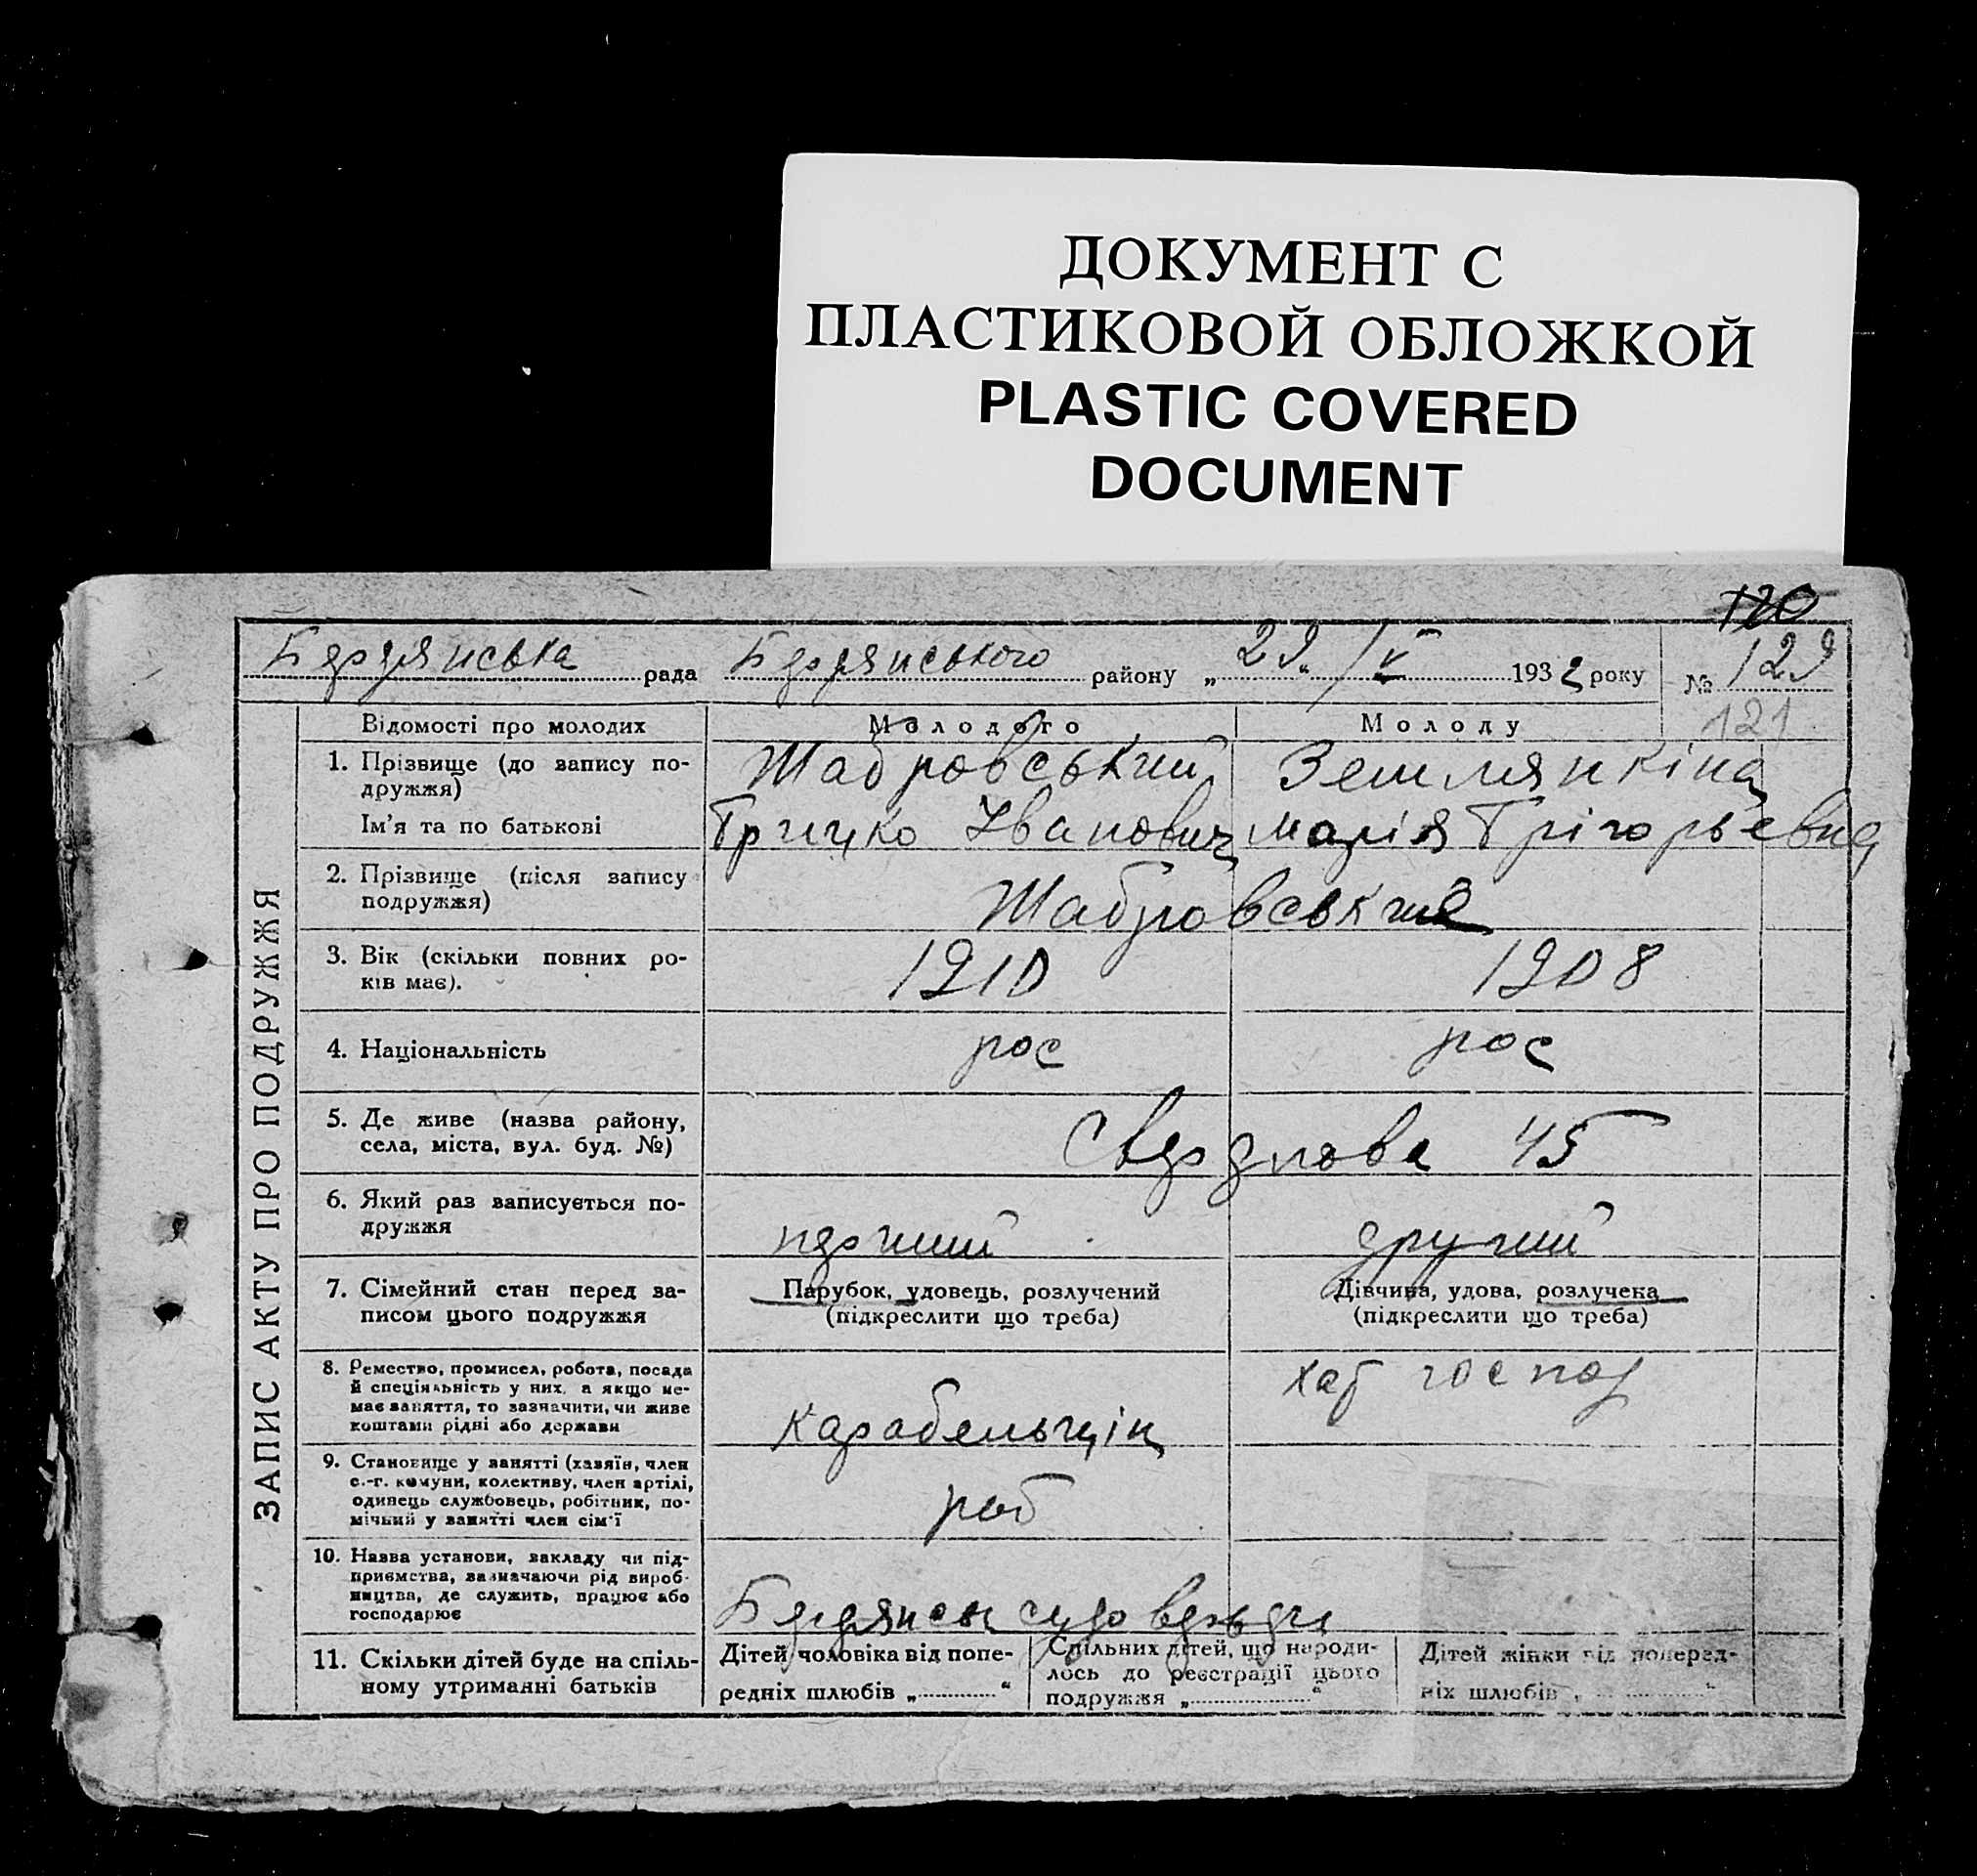 ДОКУМЕНТ С
ПЛАСТИКОВОЙ ОБЛОЖКОЙ
PLASTIC COVERED
DOCUMENT
120
Бердянська рада Бердянського району „29" /V 1932 року № 129
121
ЗАПИС АКТУ ПРО ПОДРУЖЖЯ
Відомості про молодих Молодого Молоду
1. Прізвище (до запису по-
дружжя) Жабровський Землянкіна
Ім'я та по батькові Грицко Іванович Марія Грігорьевна
2. Прізвище (після запису
подружжя) Жабровськие
3. Вік (скільки повних ро-
ків має). 1910 1908
4. Національність рос рос
5. Де живе (назва району,
села, міста, вул. буд. №) Свердлова 45
6. Який раз записується по-
дружжя перший другий
7. Сімейний стан перед за-
писом цього подружжя
Парубок, удовець, розлучений
(підкреслити що треба)
Дівчина, удова, розлучена
(підкреслити що треба)
8. Ремество, промисел, робота, посада
й спеціяльність у них, а якщо не-
має заняття, то зазначити, чи живе
коштами рідні або держави
карабельщік хат господ
9. Становище у занятті (хазяїн, член
с.-г. комуни, колективу, член артілі,
одинець службовець, робітник, по-
мічний у занятті член сім'ї
роб
10. Назва установи, закладу чи під-
приємства, зазначаючи рід вироб-
ництва, де служить, працює або
господарює
11. Скільки дітей буде на спіль-
ному утриманні батьків
Дітей чоловіка від попе-
редніх шлюбів „ "
Спільних дітей, що народи-
лось до реєстрації цього
подружжя „ "
Дітей жінки від поперед-
ніх шлюбів „ "